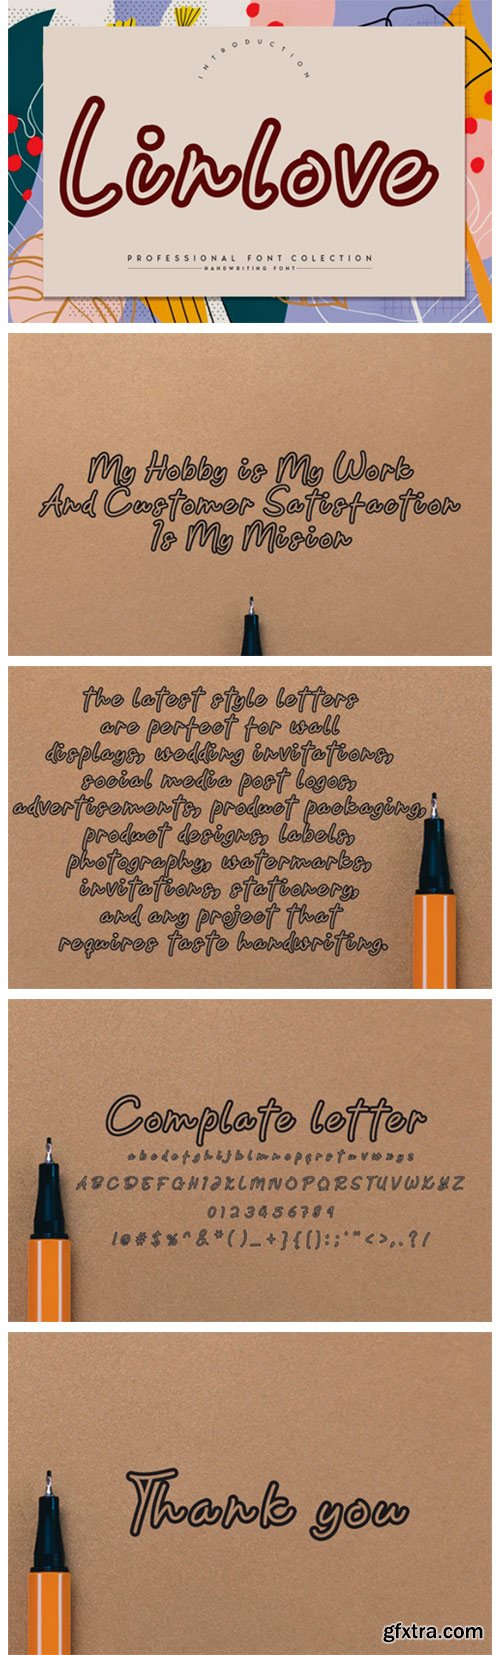 INTRODUCTION
Linlove
PROFESSIONAL FONT COLECTION
HANDWRITING FONT
My Hobby is My Work
And Customer Satisfaction
Is My Mision
the latest style letters
are perfect for wall
displays, wedding invitations,
social media post logos,
advertisements, product packaging,
product designs, labels,
photography, watermarks,
invitations, stationery,
and any project that
requires taste handwriting.
Complate letter
abcdefghijklmnopqrstuvwxyz
ABCDEFGHIJKLMNOPQRSTUVWXYZ
0123456789
!@#$%^&*()_+]{[}:;'"<>,.?/
Thank you
gfxtra.com